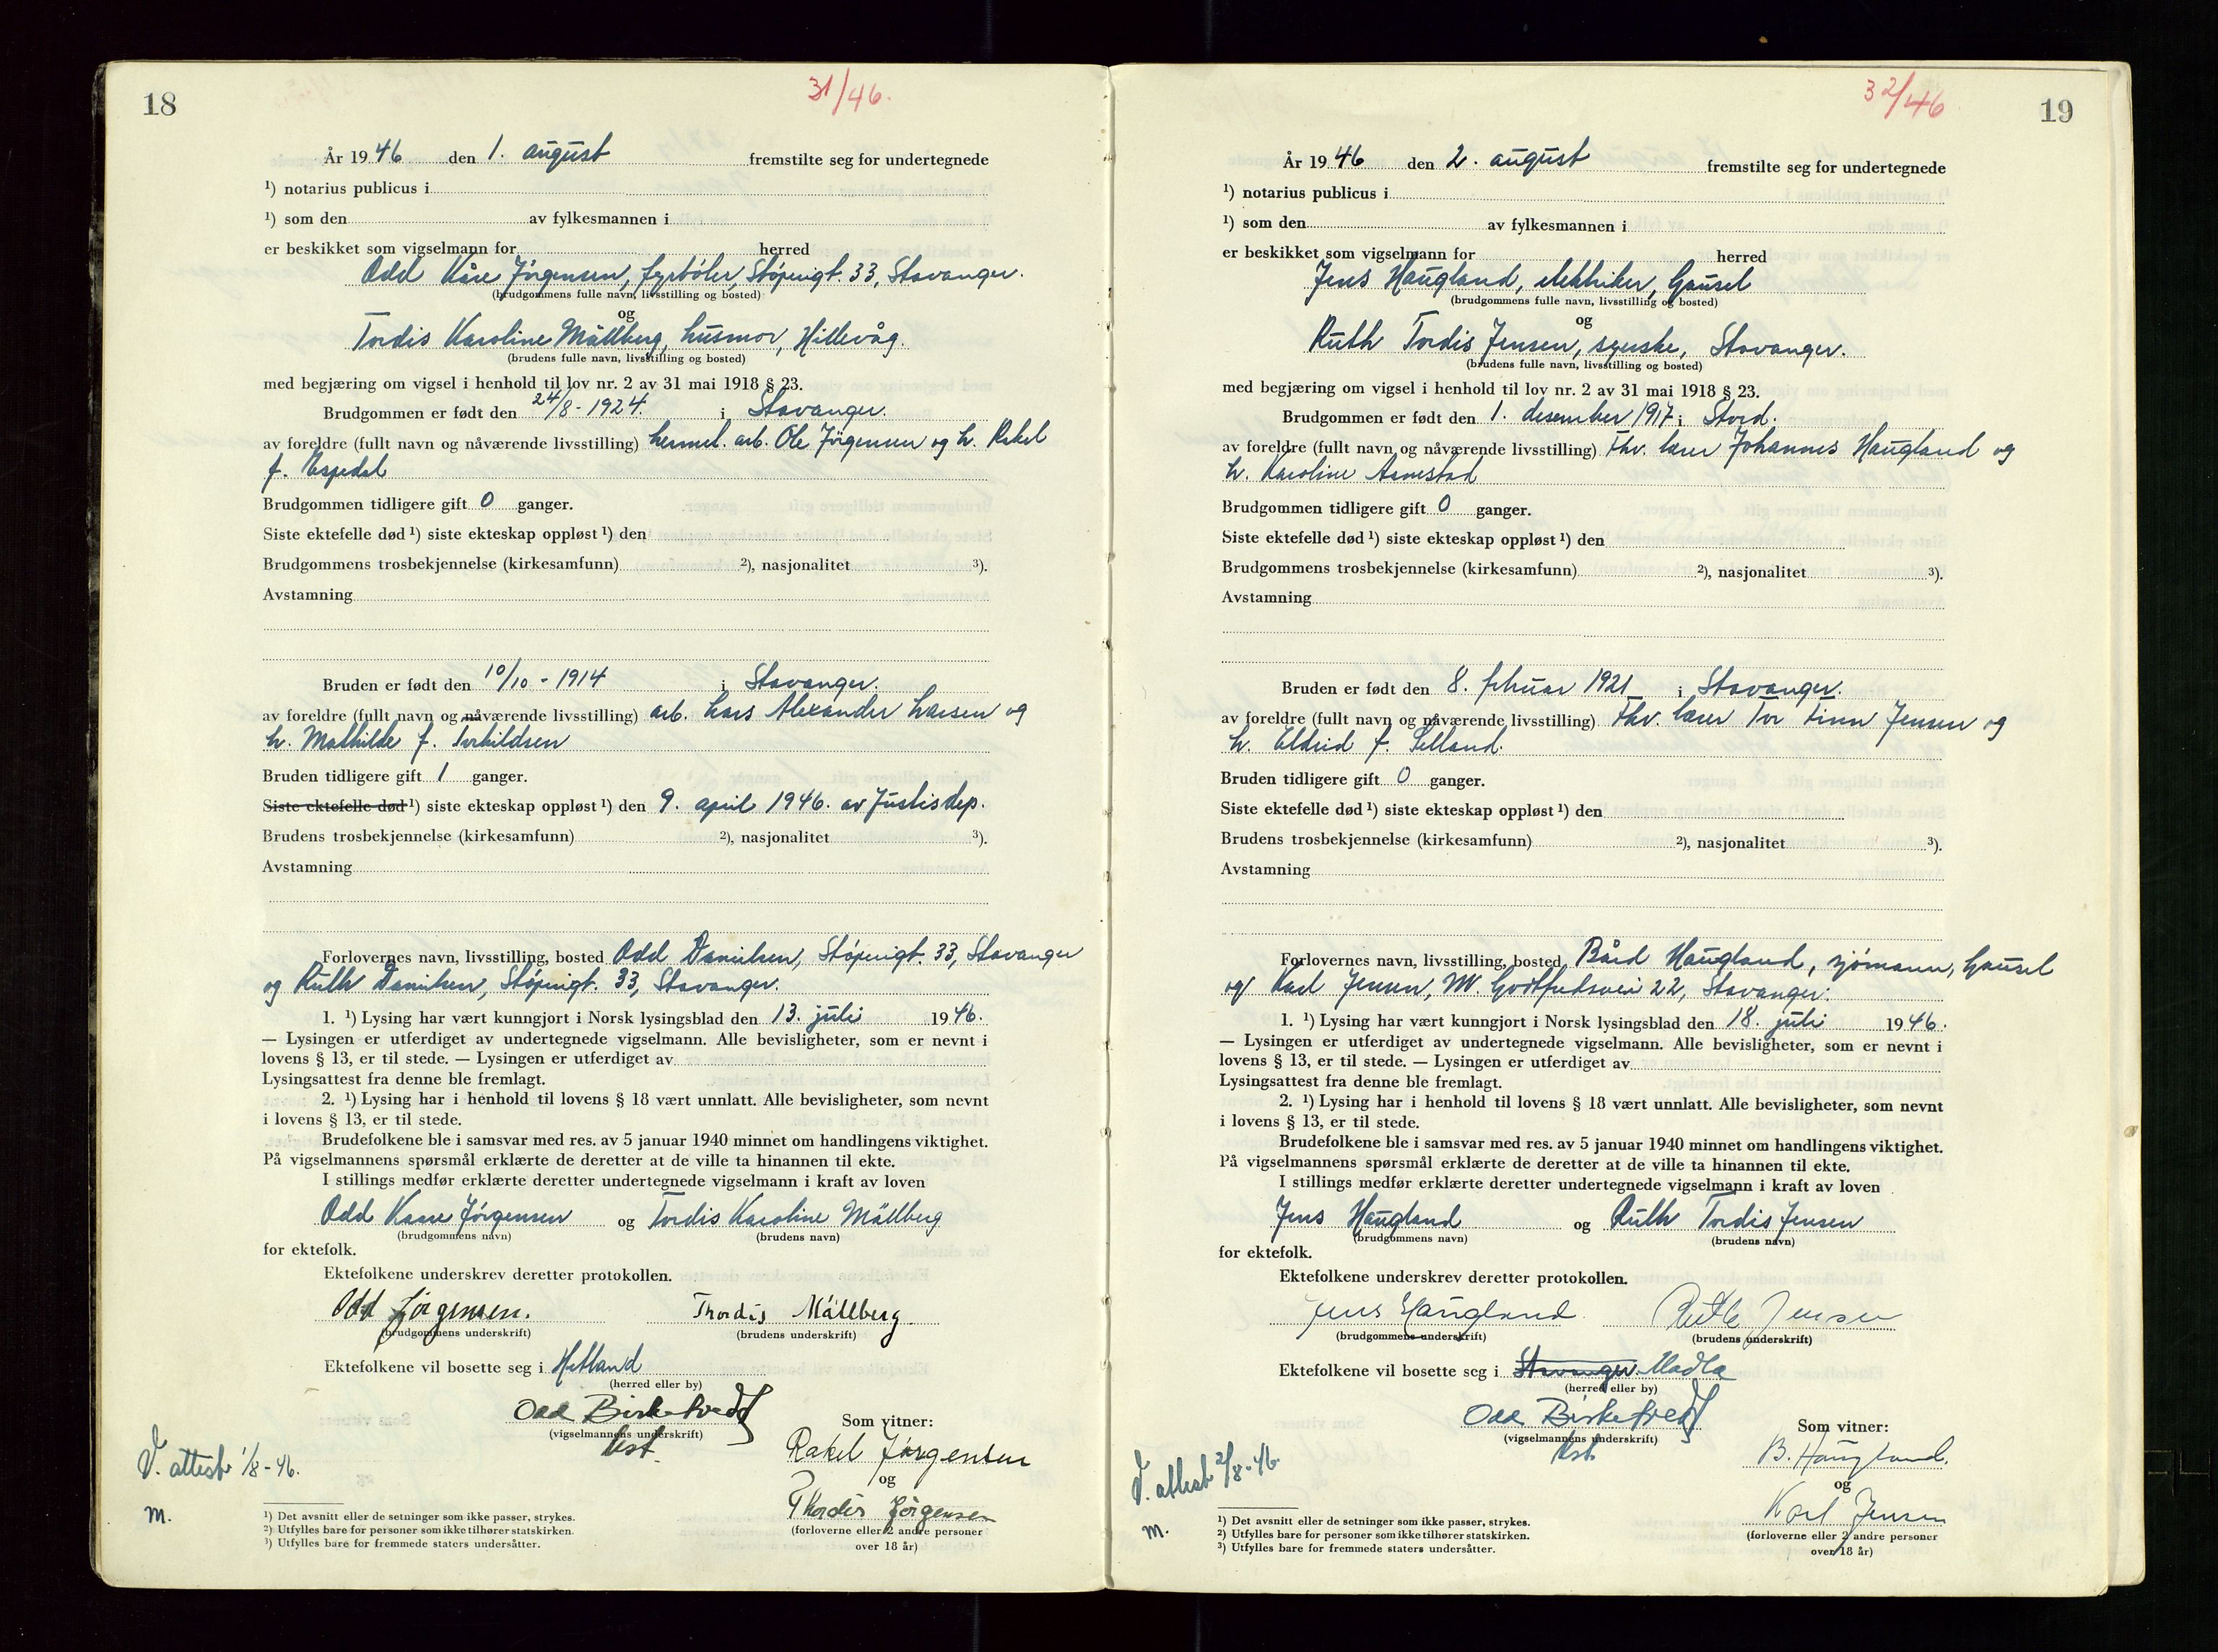 18
31/46.
År 1946 den 1. august fremstilte seg for undertegnede
¹) notarius publicus i
¹) som den av fylkesmannen i
er beskikket som vigselmann for herred
Odd Kåre Jörgensen, fyrbøter, Støperigt. 33, Stavanger.
(brudgommens fulle navn, livsstilling og bosted)
og
Tordis Karoline Mällberg, husmor, Hillevåg.
(brudens fulle navn, livsstilling og bosted)
med begjæring om vigsel i henhold til lov nr. 2 av 31 mai 1918 § 23.
Brudgommen er født den 24/8-1924. i Stavanger.
av foreldre (fullt navn og nåværende livsstilling) hermet. arb. Ole Jörgensen og h. Rakel
f. Espedal
Brudgommen tidligere gift 0 ganger.
Siste ektefelle død ¹) siste ekteskap oppløst ¹) den
Brudgommens trosbekjennelse (kirkesamfunn) ²), nasjonalitet ³).
Avstamning
Bruden er født den 10/10 - 1914 i Stavanger.
av foreldre (fullt navn og nåværende livsstilling) arb. Lars Alexander Larsen og
h. Mathilde f. Torkildsen
Bruden tidligere gift 1 ganger.
Siste ektefelle død ¹) siste ekteskap oppløst ¹) den 9. april 1946. av Justisdep.
Brudens trosbekjennelse (kirkesamfunn) ²), nasjonalitet ³).
Avstamning
Forlovernes navn, livsstilling, bosted Odd Danielsen, Støperigt. 33, Stavanger
og Ruth Danielsen, Støperigt. 33, Stavanger.
1. ¹) Lysing har vært kunngjort i Norsk lysingsblad den 13. juli 1946.
— Lysingen er utferdiget av undertegnede vigselmann. Alle bevisligheter, som er nevnt i
lovens § 13, er til stede. — Lysingen er utferdiget av
Lysingsattest fra denne ble fremlagt.
2. ¹) Lysing har i henhold til lovens § 18 vært unnlatt. Alle bevisligheter, som nevnt
i lovens § 13, er til stede.
Brudefolkene ble i samsvar med res. av 5 januar 1940 minnet om handlingens viktighet.
På vigselmannens spørsmål erklærte de deretter at de ville ta hinannen til ekte.
I stillings medfør erklærte deretter undertegnede vigselmann i kraft av loven
Odd Kaare Jörgensen og Tordis Karoline Mällberg
(brudgommens navn) (brudens navn)
for ektefolk.
Ektefolkene underskrev deretter protokollen.
Odd Jørgensen. Thordis Mällberg
(brudgommens underskrift) (brudens underskrift)
Ektefolkene vil bosette seg i Hetland
(herred eller by)
Odd Birketvedt
(vigselmannens underskrift)
kst.
Som vitner:
Rakel Jørgensen
og
Thordis Jørgensen
(forloverne eller 2 andre personer
over 18 år)
V. attest 1/8-46.
M.
¹) Det avsnitt eller de setninger som ikke passer, strykes.
²) Utfylles bare for personer som ikke tilhører statskirken.
³) Utfylles bare for fremmede staters undersåtter.
19
32/46
År 1946 den 2. august fremstilte seg for undertegnede
¹) notarius publicus i
¹) som den av fylkesmannen i
er beskikket som vigselmann for herred
Jens Haugland, elektriker, Gausel
(brudgommens fulle navn, livsstilling og bosted)
og
Ruth Tordis Jensen, syerske, Stavanger.
(brudens fulle navn, livsstilling og bosted)
med begjæring om vigsel i henhold til lov nr. 2 av 31 mai 1918 § 23.
Brudgommen er født den 1. desember 1917 i Stord.
av foreldre (fullt navn og nåværende livsstilling) Fhv. lærer Johannes Haugland og
h. Karoline
Brudgommen tidligere gift 0 ganger.
Siste ektefelle død ¹) siste ekteskap oppløst ¹) den
Brudgommens trosbekjennelse (kirkesamfunn) ²), nasjonalitet ³).
Avstamning
Bruden er født den 8. februar 1921 i Stavanger.
av foreldre (fullt navn og nåværende livsstilling) Fhv. lærer Tor Finn Jensen og
h. Eldrid f. Selland.
Bruden tidligere gift 0 ganger.
Siste ektefelle død ¹) siste ekteskap oppløst ¹) den
Brudens trosbekjennelse (kirkesamfunn) ²), nasjonalitet ³).
Avstamning
Forlovernes navn, livsstilling, bosted Bård Haugland, sjømann, Gausel
og Karl Jensen, M. Godtfredsvei 22, Stavanger.
1. ¹) Lysing har vært kunngjort i Norsk lysingsblad den 18. juli 1946.
— Lysingen er utferdiget av undertegnede vigselmann. Alle bevisligheter, som er nevnt i
lovens § 13, er til stede. — Lysingen er utferdiget av
Lysingsattest fra denne ble fremlagt.
2. ¹) Lysing har i henhold til lovens § 18 vært unnlatt. Alle bevisligheter, som nevnt
i lovens § 13, er til stede.
Brudefolkene ble i samsvar med res. av 5 januar 1940 minnet om handlingens viktighet.
På vigselmannens spørsmål erklærte de deretter at de ville ta hinannen til ekte.
I stillings medfør erklærte deretter undertegnede vigselmann i kraft av loven
Jens Haugland og Ruth Tordis Jensen
(brudgommens navn) (brudens navn)
for ektefolk.
Ektefolkene underskrev deretter protokollen.
Jens Haugland Ruth Jensen
(brudgommens underskrift) (brudens underskrift)
Ektefolkene vil bosette seg i Stavanger Madla
(herred eller by)
Odd Birketvedt
(vigselmannens underskrift)
kst.
Som vitner:
B. Haugland.
og
Karl Jensen
(forloverne eller 2 andre personer
over 18 år)
V. attest 2/8-46.
M.
¹) Det avsnitt eller de setninger som ikke passer, strykes.
²) Utfylles bare for personer som ikke tilhører statskirken.
³) Utfylles bare for fremmede staters undersåtter.